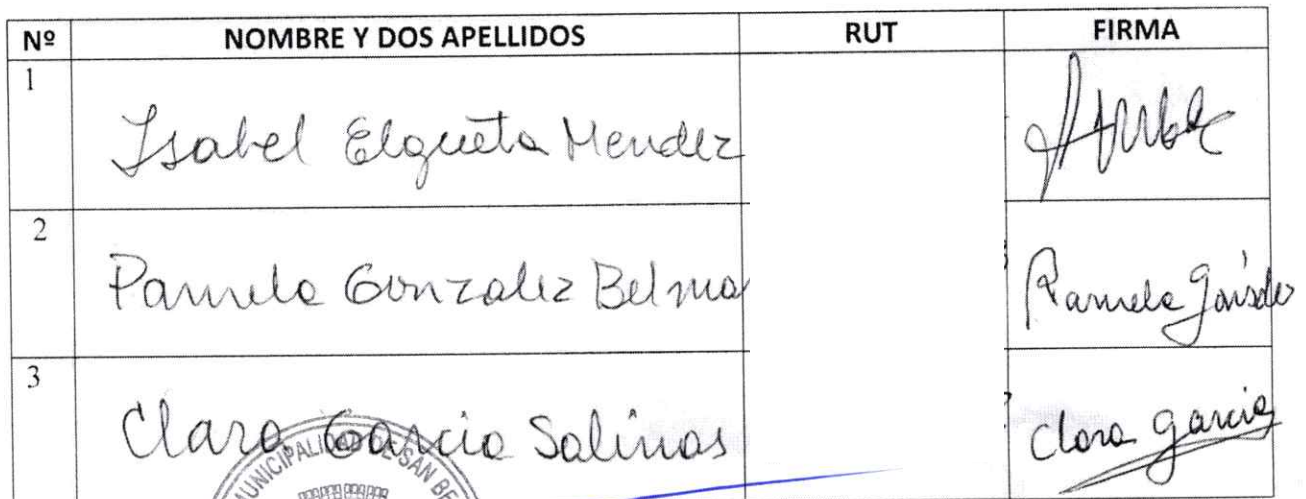 Nº NOMBRE Y DOS APELLIDOS RUT FIRMA
1 Isabel Elgueta Mendez
2 Pamela Gonzalez Belma Pamela González
3 Clara Garcia Salinas Clara Garcia
MUNICIPALIDAD DE SAN BE